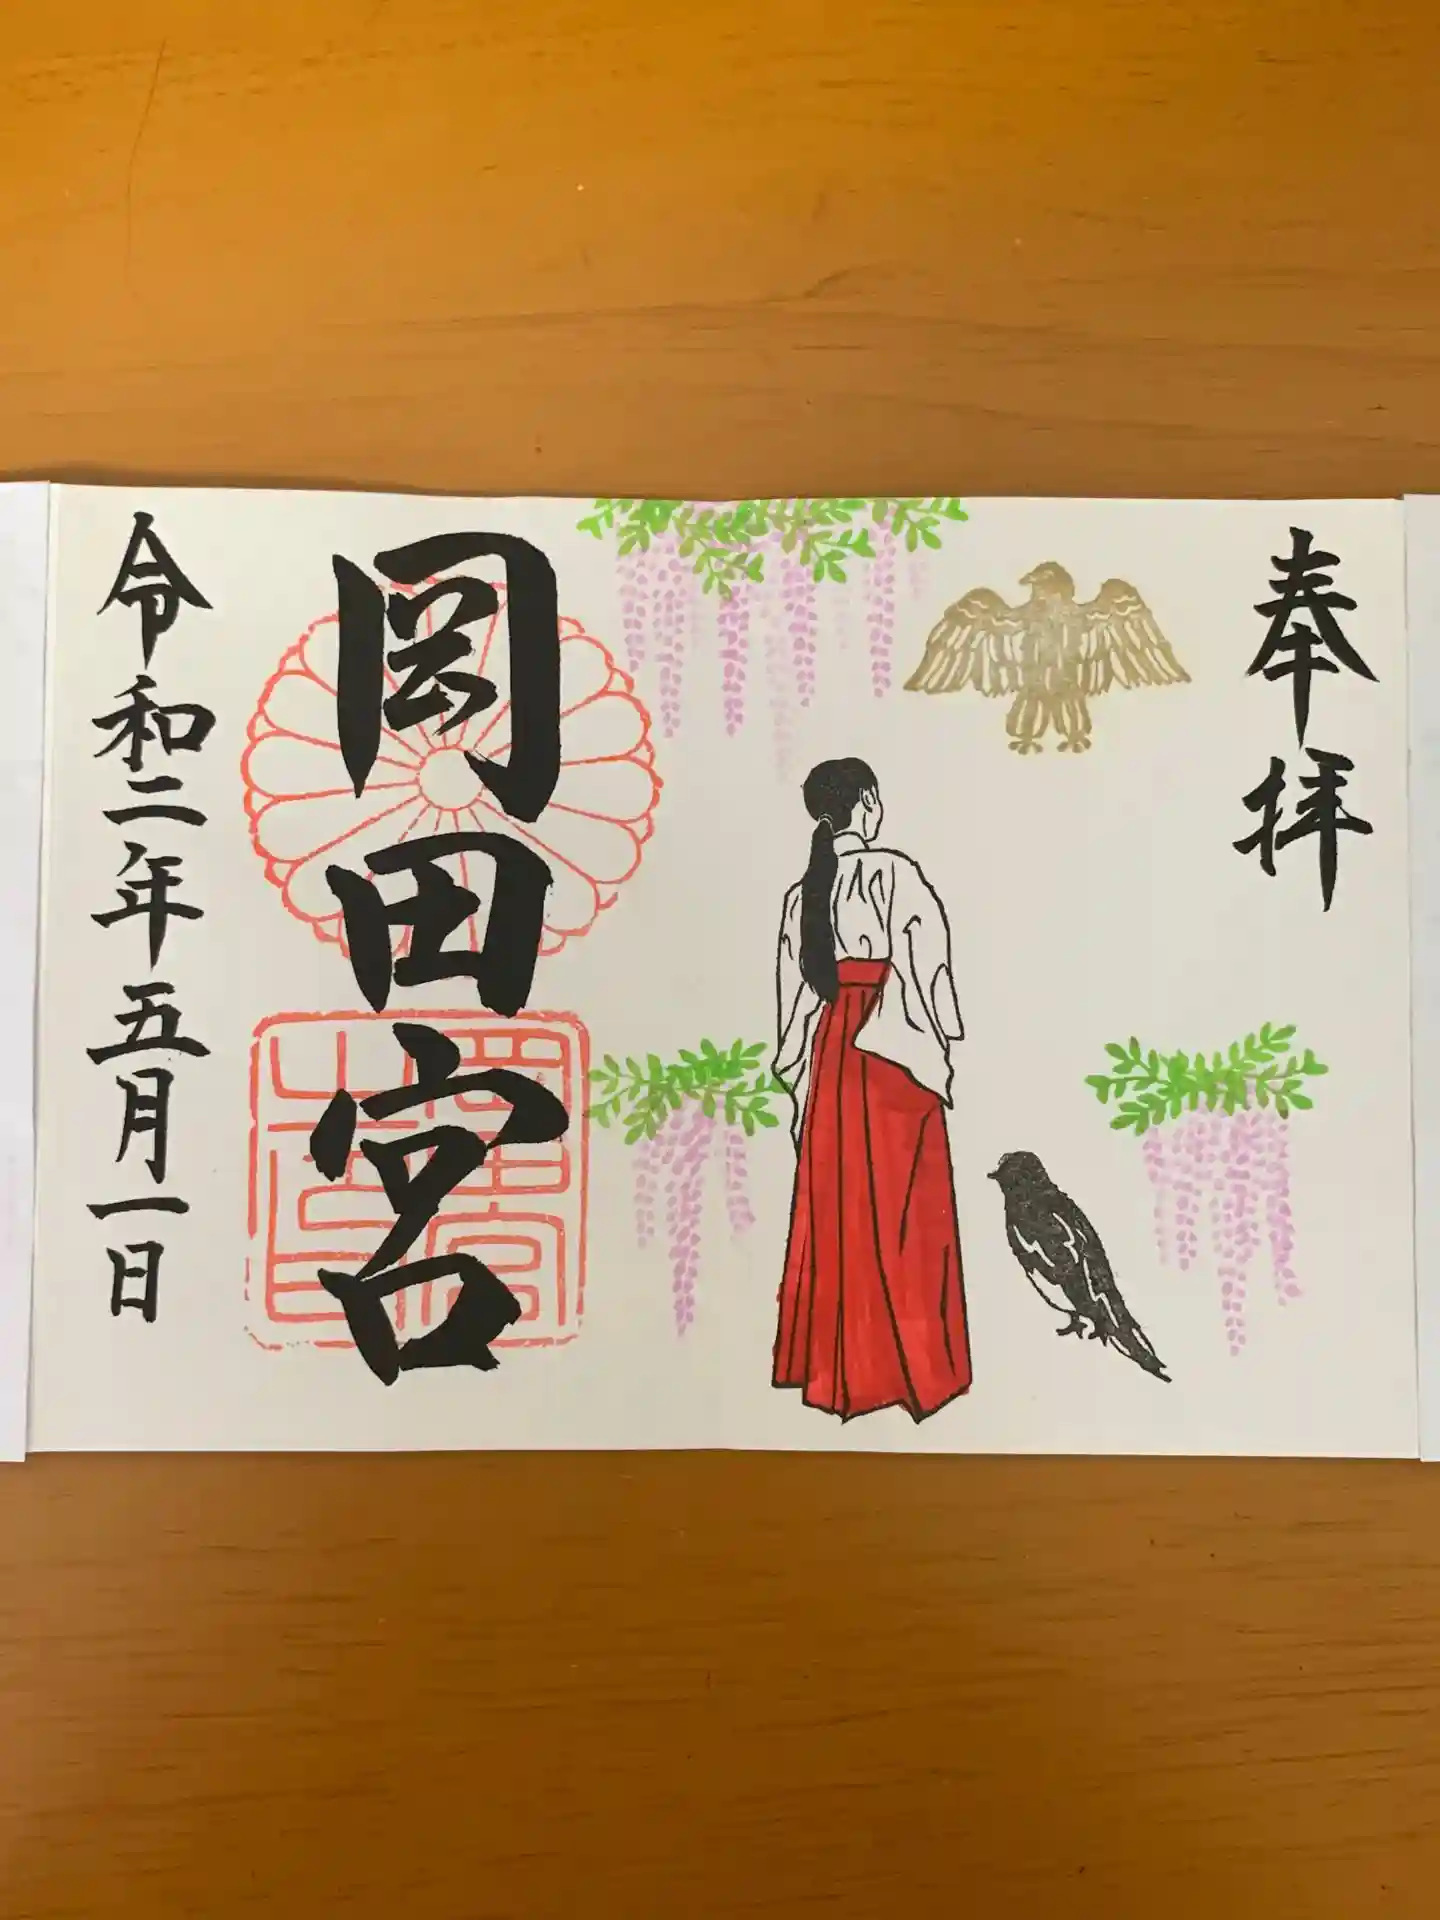 奉拝
岡田宮
令和二年五月一日